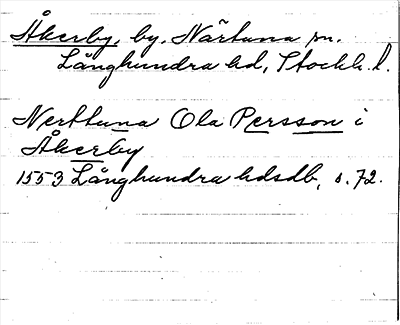 Åkerby, by, Närtuna sn.
Långhundra hd, Stockh. l.
Nerttuna Ola Persson i
Åkerby
1553 Långhundra hdsdb, s. 72.